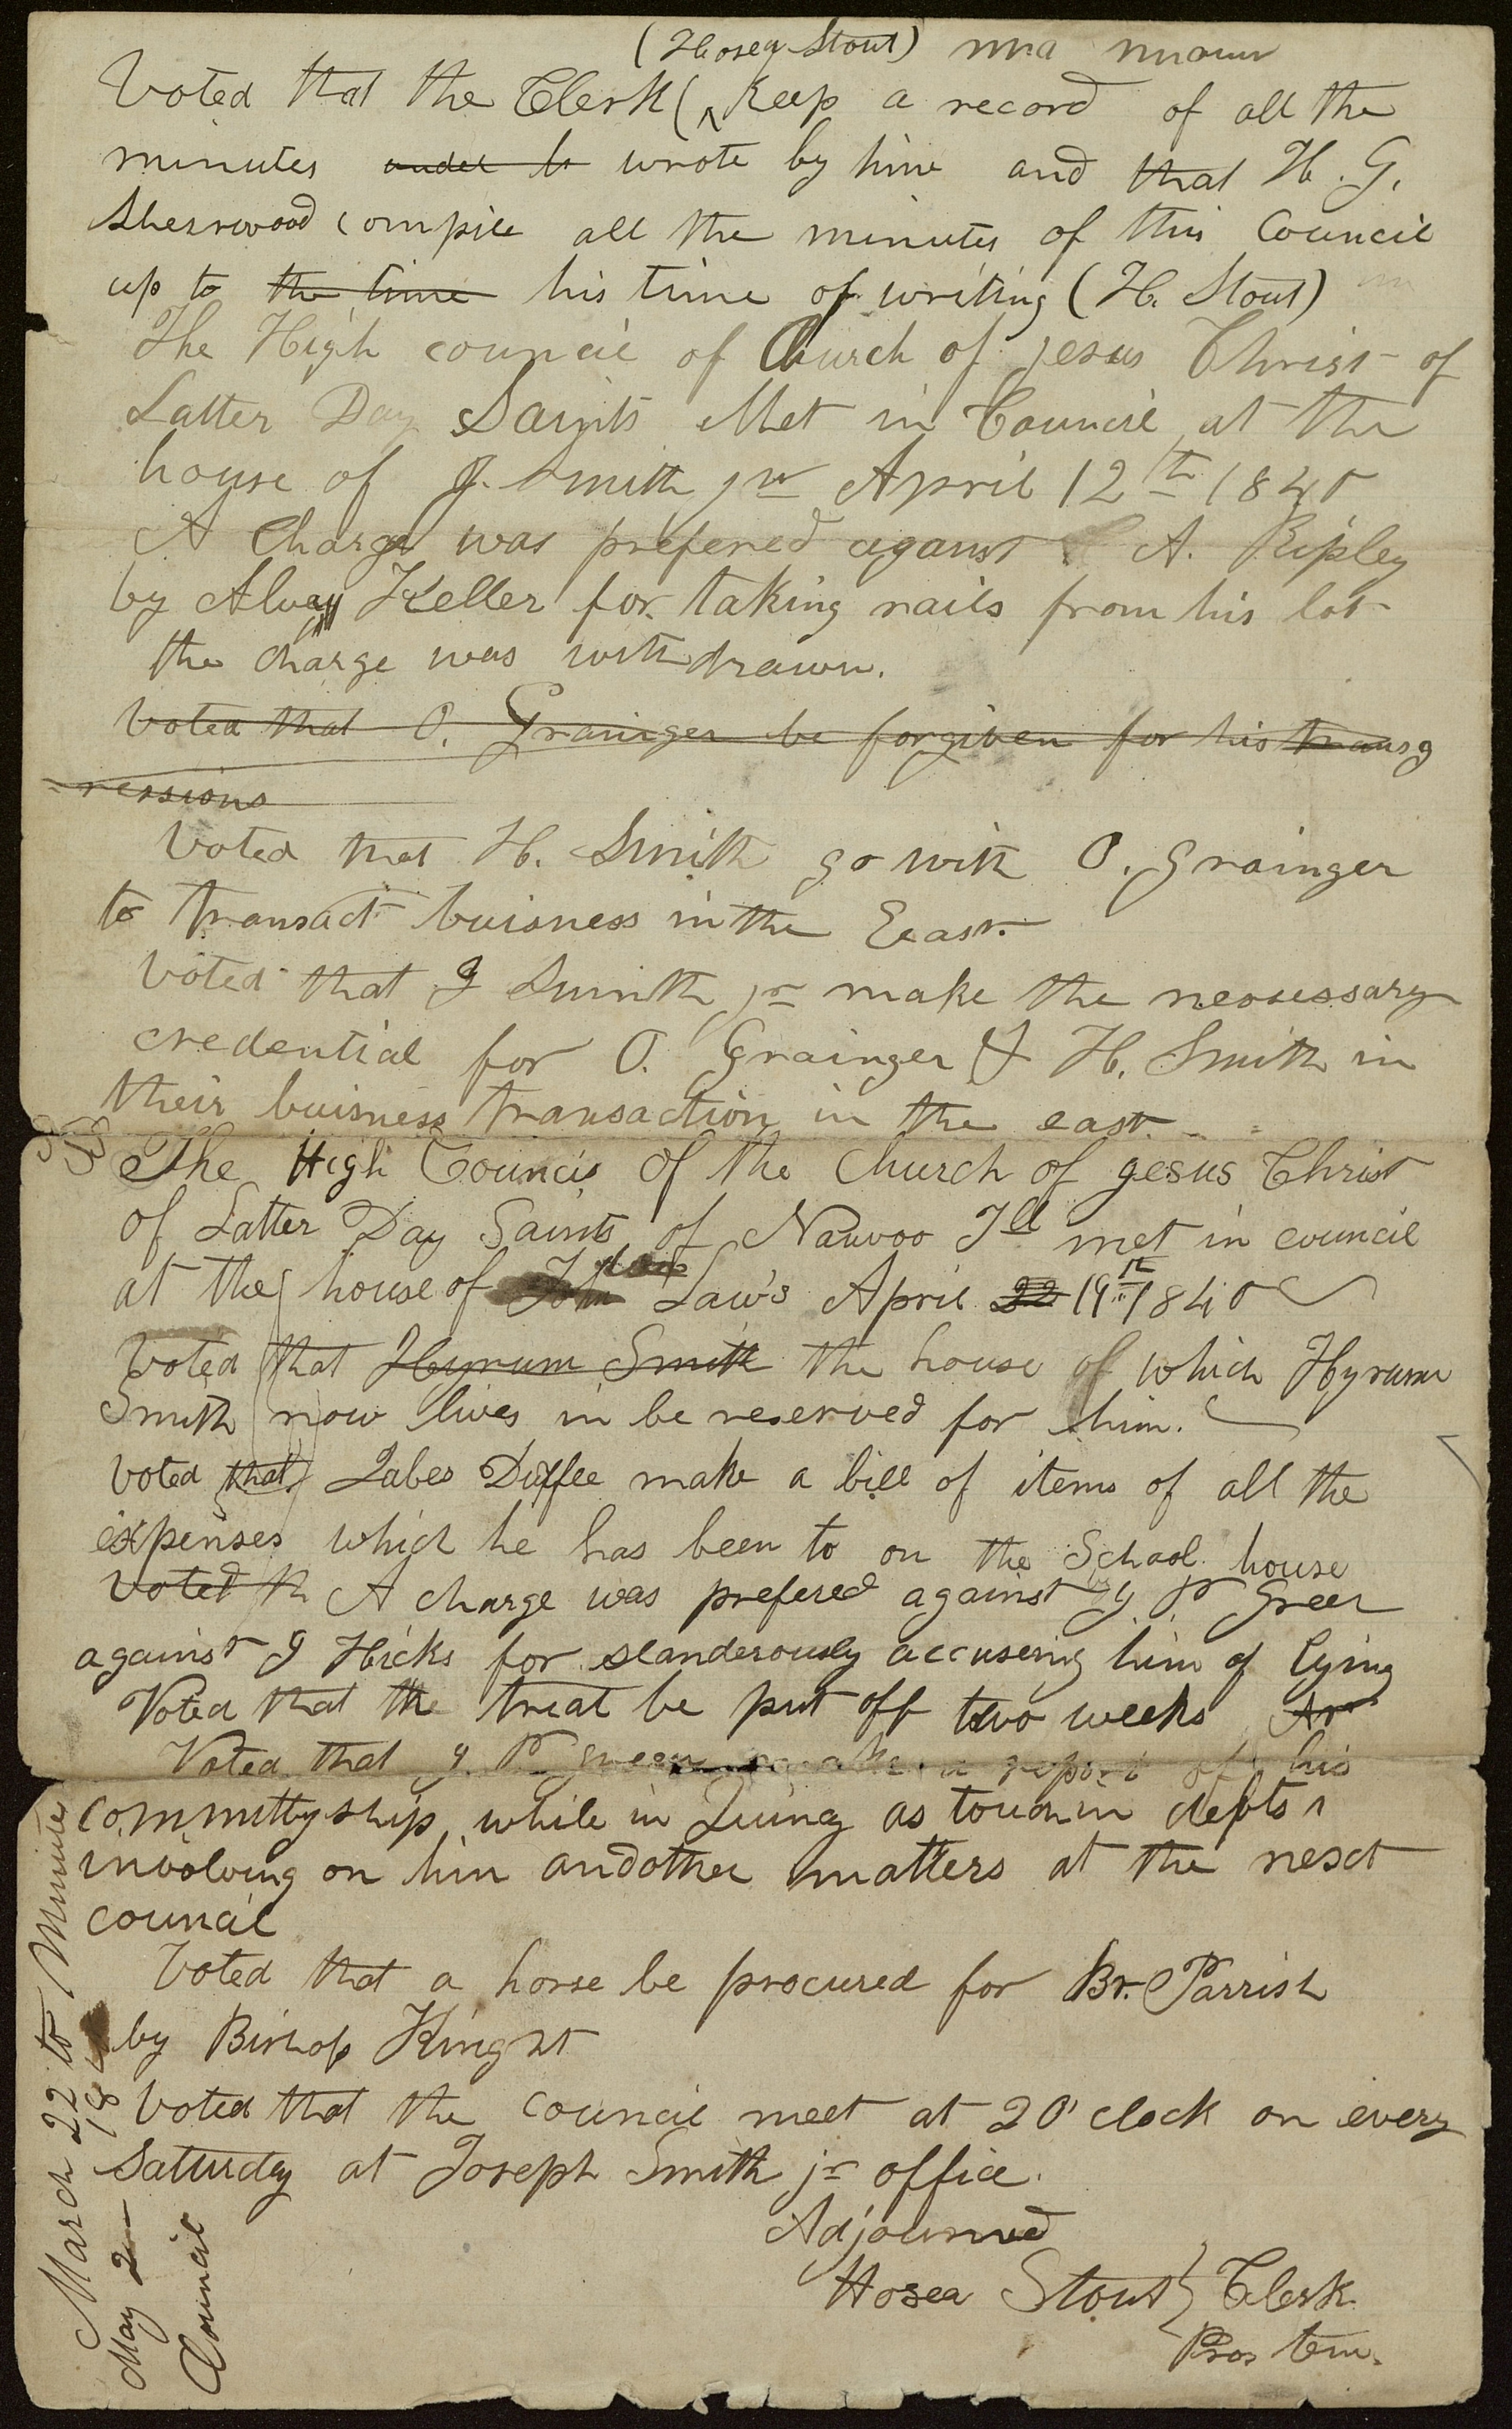 (Hosea Stout)
Voted that the Clerk ( ^ Keep a record of all the
minutes wrote by him and that H. G.
Sherrwood compile all the minutes of this Council
up to the time his time of writing (H. Stout)
The High council of Church of jesus Christ of
Latter Day Saints Met in Council at the
house of J. Smith jr April 12th 1840
A Charge was prefered against A. Ripley
by Alvay Keller for taking rails from his lot
the charge was withdrawn.
Voted that O. Grainger be forgiven for his transg
=ressions
Voted that H. Smith go with O. Grainger
to transact buisness in the East.
Voted that J Smith jr make the necessary
credential for O. Grainger & H. Smith in
their buisness transaction in the east.
The High Council of the Church of jesus Christ
of Latter Day Saints of Nauvoo Ill met in council
at the house of John Law's April 22 19th 1840
Voted that Hyrum Smith the house of which Hyrum
Smith now lives in be reserved for him.
Voted that Zabes Duffee make a bill of items of all the
expenses which he has been to on the School house
Voted th A charge was prefered against J P Greer
against J Hicks for slanderously accusering him of lying
Voted that the treal be put off two weeks
Voted that J. P green make a report of his
committyship while in Quincy as touchin depts
involving on him and other matters at the nesct
council
Voted that a horse be procured for Br. Parrish
by Bishop Kinght
Voted that the council meet at 2 O'clock on every
Saturday at Joseph Smith jr office.
Adjourned
Hosea Stout } Clerk
Pros tem.
March 22 to Minutes
May 2 18
Council